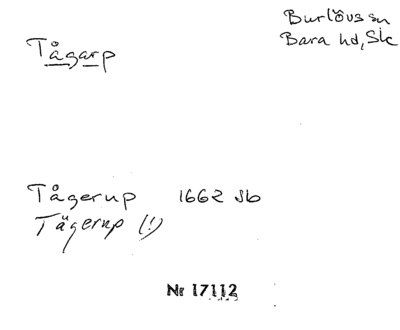 Burlövs sn
Bara hd, Sk
Tågarp
Tågerup 1662 Jb
Tägerup (!)
Nr 17112